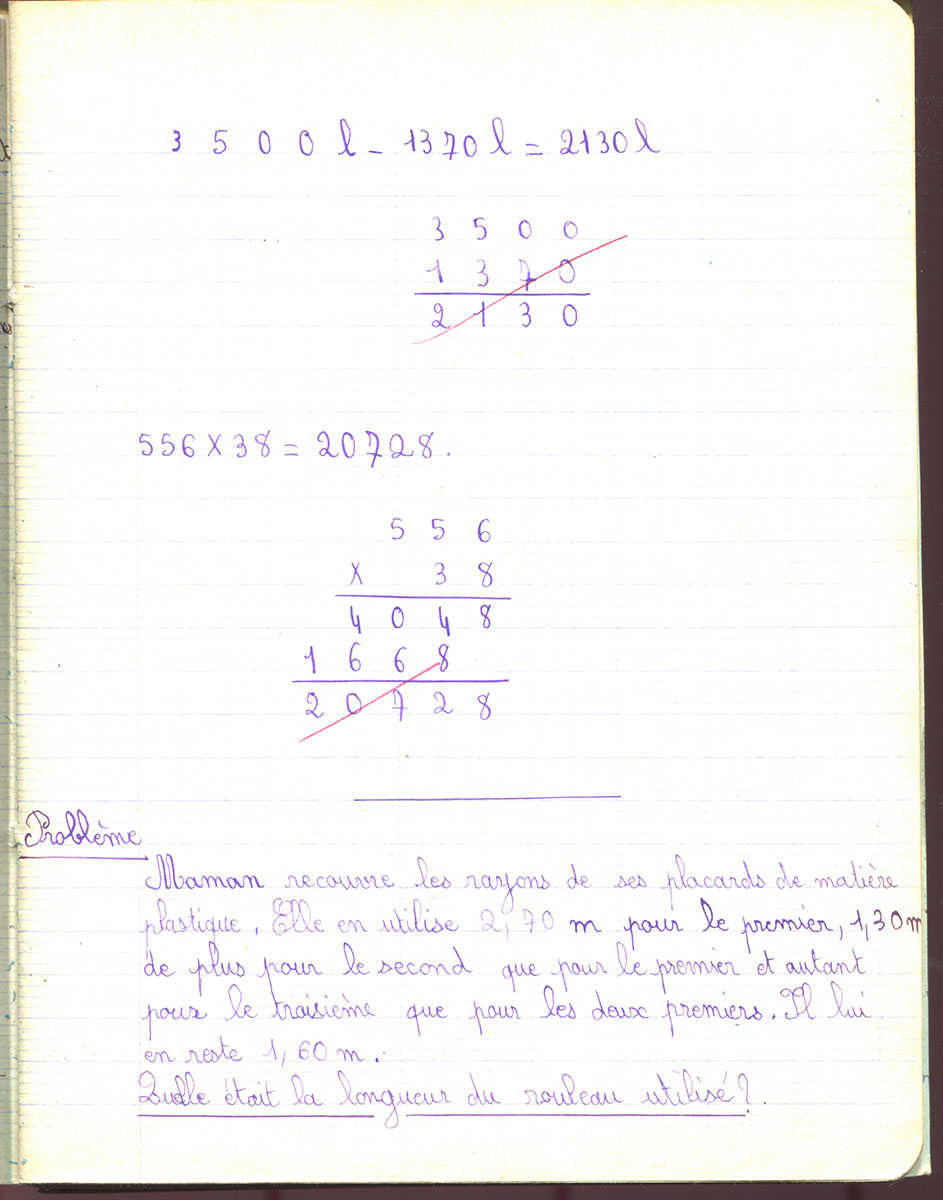 3 5 0 0 l - 1370 l = 2130 l
3 5 0 0
1 3 7 0
2 1 3 0
556 X 38 = 20728.
5 5 6
X 3 8
4 0 4 8
1 6 6 8
2 0 7 2 8
Problème
Maman recouvre les rayons de ses placards de matière
plastique. Elle en utilise 2,70 m pour le premier, 1,30 m
de plus pour le second que pour le premier et autant
pour le troisième que pour les deux premiers. Il lui
en reste 1,60 m.
Quelle était la longueur du rouleau utilisé ?